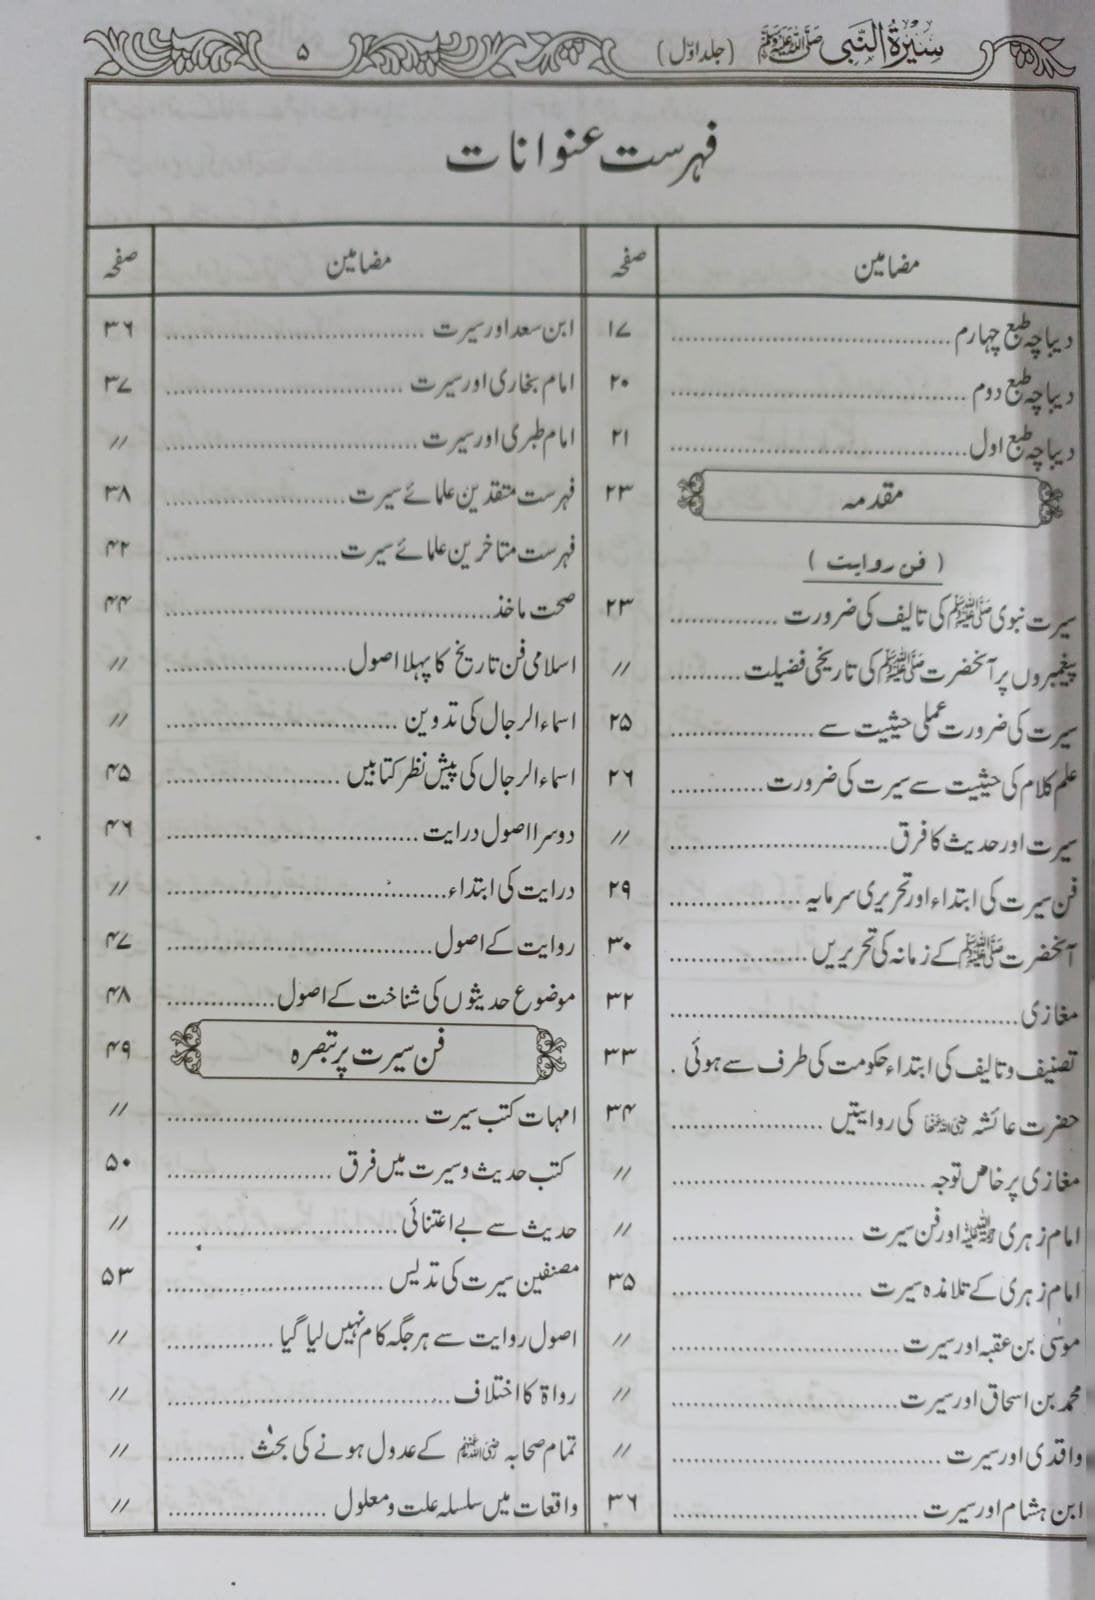 سیرۃ النبی ﷺ (جلد اوّل) ۵
فہرست عنوانات
مضامین صفحہ
دیباچہ طبع چہارم ........ ۱۷
دیباچہ طبع دوم ........ ۲۰
دیباچہ طبع اول ........ ۲۱
مقدمہ ۲۳
(فن روایت)
سیرت نبوی ﷺ کی تالیف کی ضرورت ........ ۲۳
پیغمبروں پر آنحضرت ﷺ کی تاریخی فضیلت ........ //
سیرت کی ضرورت عملی حیثیت سے ........ ۲۵
علم کلام کی حیثیت سے سیرت کی ضرورت ........ ۲۶
سیرت اور حدیث کا فرق ........ //
فن سیرت کی ابتداء اور تحریری سرمایہ ........ ۲۹
آنحضرت ﷺ کے زمانہ کی تحریریں ........ ۳۰
مغازی ........ ۳۲
تصنیف و تالیف کی ابتداء حکومت کی طرف سے ہوئی . ۳۳
حضرت عائشہ رضی اللہ عنہا کی روایتیں ........ ۳۴
مغازی پر خاص توجہ ........ //
امام زہری رحمۃ اللہ علیہ اور فن سیرت ........ //
امام زہری کے تلامذہ سیرت ........ ۳۵
موسیٰ بن عقبہ اور سیرت ........ //
محمد بن اسحاق اور سیرت ........ //
واقدی اور سیرت ........ //
ابن ہشام اور سیرت ........ ۳۶
مضامین صفحہ
ابن سعد اور سیرت ........ ۳۶
امام بخاری اور سیرت ........ ۳۷
امام طبری اور سیرت ........ //
فہرست متقدین علمائے سیرت ........ ۳۸
فہرست متاخرین علمائے سیرت ........ ۴۲
صحت ماخذ ........ ۴۴
اسلامی فن تاریخ کا پہلا اصول ........ //
اسماء الرجال کی تدوین ........ //
اسماء الرجال کی پیش نظر کتابیں ........ ۴۵
دوسرا اصول درایت ........ ۴۶
درایت کی ابتداء ........ //
روایت کے اصول ........ ۴۷
موضوع حدیثوں کی شناخت کے اصول ........ ۴۸
فن سیرت پر تبصرہ ۴۹
امہات کتب سیرت ........ //
کتب حدیث و سیرت میں فرق ........ ۵۰
حدیث سے بے اعتنائی ........ //
مصنفین سیرت کی تدلیس ........ ۵۳
اصول روایت سے ہر جگہ کام نہیں لیا گیا ........ //
رواۃ کا اختلاف ........ //
تمام صحابہ رضی اللہ عنہم کے عدول ہونے کی بحث ........ //
واقعات میں سلسلہ علت و معلول ........ //